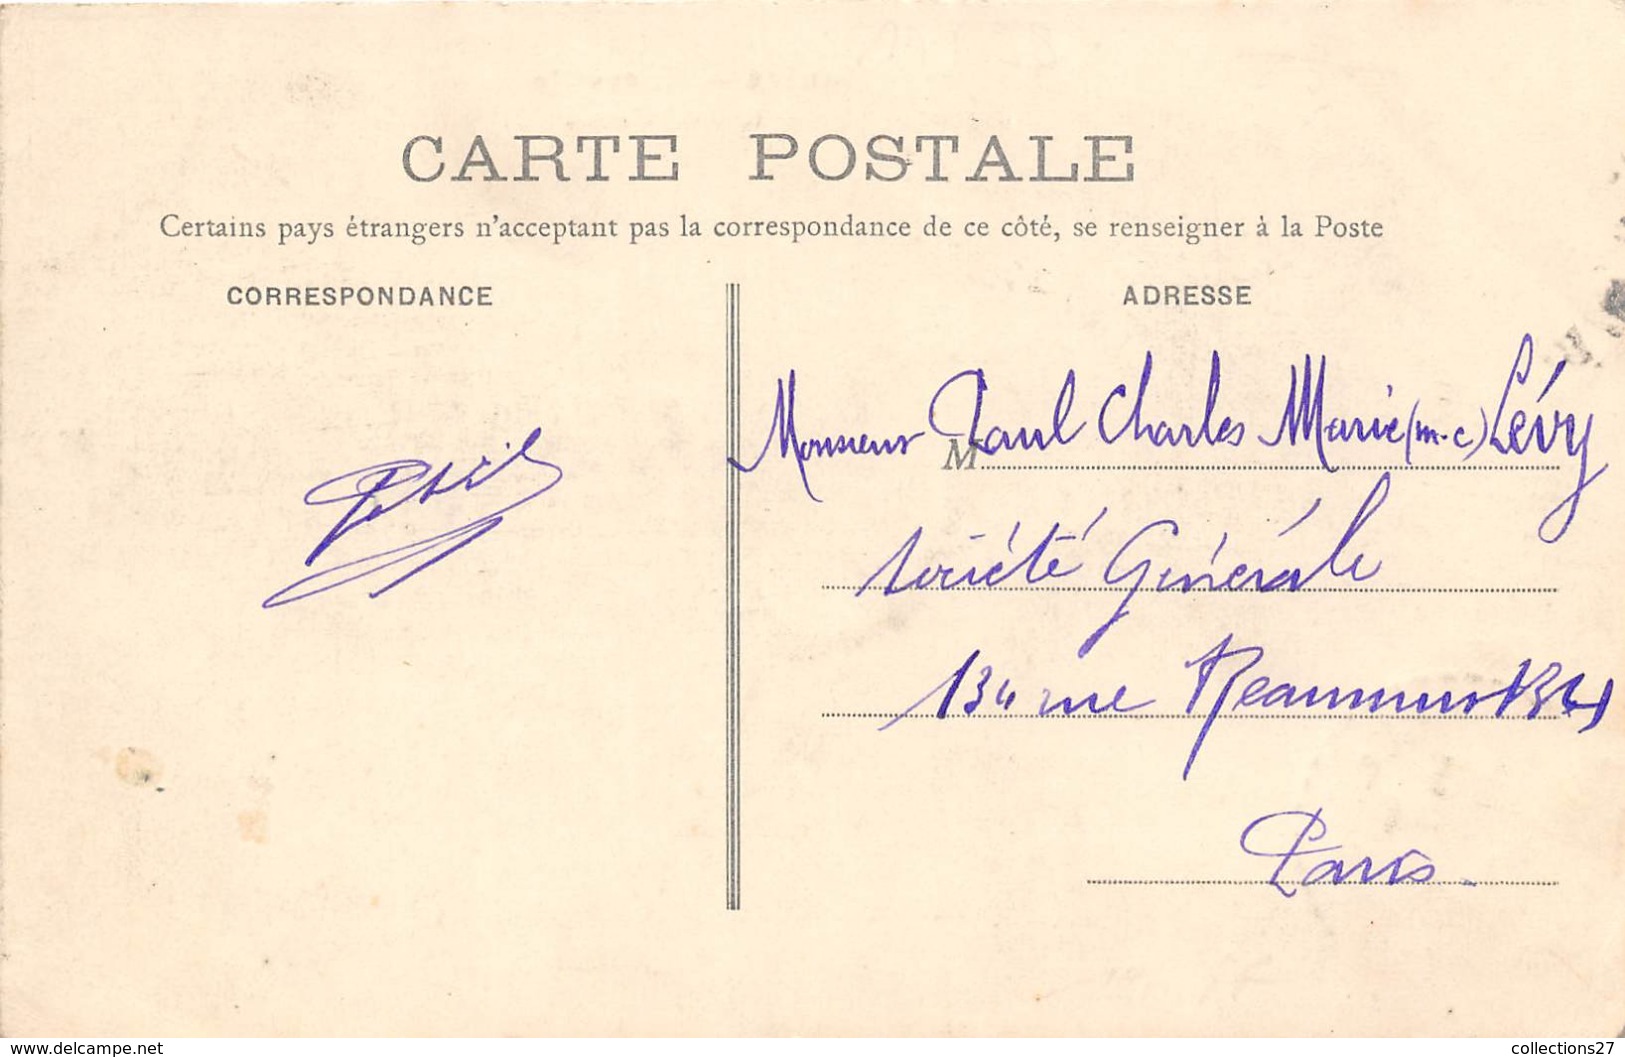 CARTE POSTALE
Certains pays étrangers n'acceptant pas la correspondance de ce côté, se renseigner à la Poste
CORRESPONDANCE
ADRESSE
Monsieur Paul Charles Marie (m.c) Lévy
M
Société Générale
134 rue Reaumur 134
Paris.
www.delcampe.net
collections27